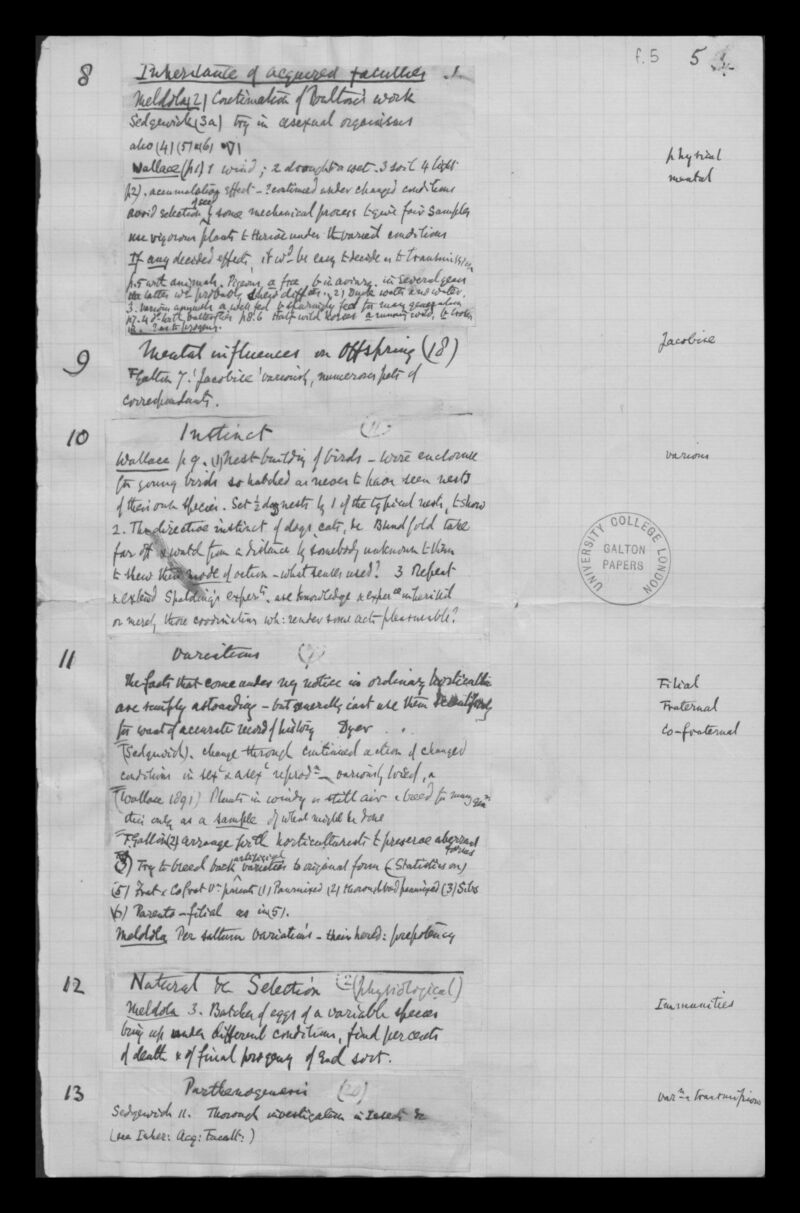 f.5 5
8 Inheritance of acquired faculties
Meldola (2) Continuation of Poulton's work
Sedgewick (3a) try in asexual organisms
also (4) (5) (6)
Wallace (p1) 1 wind; 2 drought & wet. 3 soil 4 light
p2). accumulating effect - ? continued under changed conditions
avoid selection of seed by some mechanical process to give fair samples
use vigorous plants to thrive under the varied conditions
If any decided effects, it wd be easy to decide as to transmission
p.5 with animals. Pigeons, a free, b in aviary. in several years
the latter wd probably shew diffces. 2) Duck water and water.
3. various animals a well fed b starvingly fed for many generations
butterflies p8.6 Half wild horses
? as to progeny.
physical
mental
9 Mental influences on offspring (18)
FGalton 7. 'Jacobise' variously, numerous pets of
correspondents.
Jacobise
10 Instinct (11)
Wallace p 9. (1) Nest-building of birds - wire enclosure
for young birds so hatched as never to have seen nests
of their own species. Set ½ doz nests by 1 of the typical nests, to show
2. The directive instinct of dogs, cats, &c Blindfold take
far off & watch from a distance by somebody unknown to them
to shew their mode of return - what senses used? 3 Repeat
& extend Spalding's experts. are knowledge & experce inherited
or merely those coordinations wh: render some acts pleasurable?
various
UNIVERSITY COLLEGE LONDON
GALTON
PAPERS
11 Variations
The facts that come under my notice in ordinary horticulture
are simply astounding - but generally cant use them scientifically
for want of accurate record of history Dyer
(Sedgwick). change through continued action of changed
conditions in sexl & asexl reprodn variously bred,
(Wallace 1891) Plants in windy & still air & breed for many genns
this only as a sample of what might be done
FGalton (2) arrange with horticulturists to preserve aberrant
forms
(3) Try to breed back artificial varieties to original form (Statistics on)
(5) Frat & CoFrat Vn parents (1) Panmixed (2) thoroughbred panmixed (3) Sibs
(6) Parents - filial as in (5).
Meldola Per saltum variations - their hered: prepotency
Filial
Fraternal
Co-fraternal
12 Natural &c Selection (physiological)
Meldola 3. Batches of eggs of a variable species
bring up under different conditions, find per cents
of death & of final progeny of each sort.
Immunities
13 Parthenogenesis (20)
Sedgewick 11. Thorough investigation in Insects &c
(see Inher: Acq: Facult:)
varn & transmission